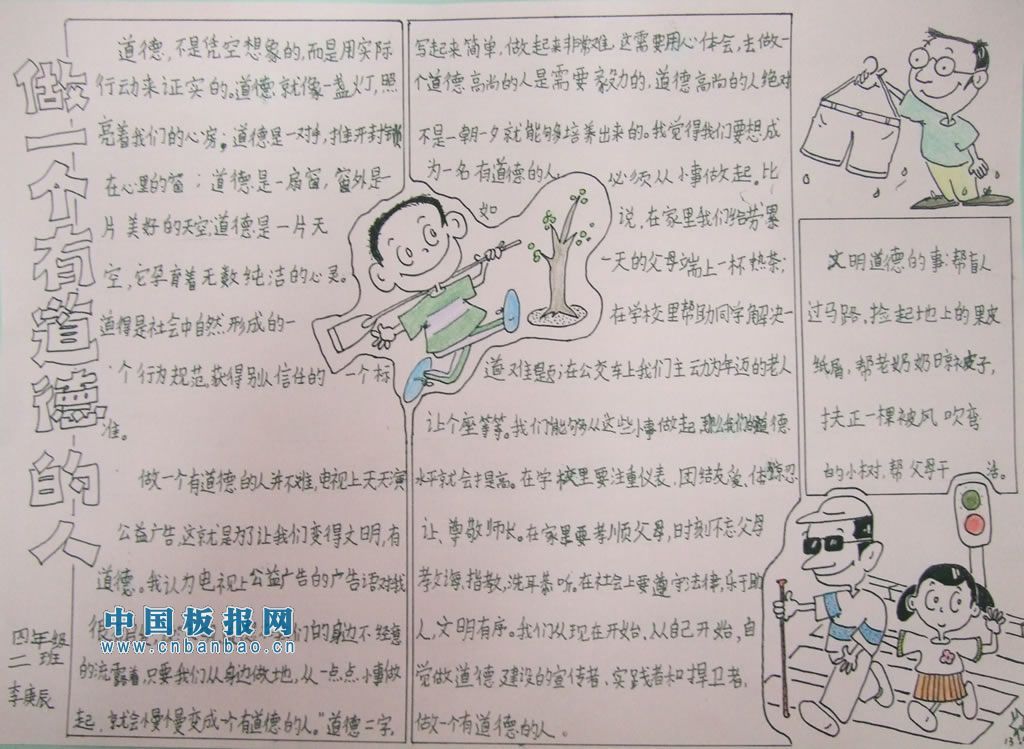 做一个有道德的人
四年级
二班
李庚辰
道德,不是凭空想象的,而是用实际
行动来证实的。道德就像一盏灯,照
亮着我们的心房;道德是一对手,推开封锁
在心里的窗;道德是一扇窗,窗外是一
片美好的天空;道德是一片天
空,它孕育着无数纯洁的心灵。
道得是社会中自然形成的一
个行为规范,获得别人信任的一个标
准。
做一个有道德的人并不难,电视上天天演
公益广告,这就是为了让我们变得文明,有
道德。我认为电视上公益广告的广告语对我
很
们的身边不经意
的流露着,只要我们从身边做地,从一点点小事做
起,就会慢慢变成一个有道德的人。"道德二字,
写起来简单,做起来非常难,这需要用心体会,去做一
个道德高尚的人是需要毅力的,道德高尚的人绝对
不是一朝一夕就能够培养出来的。我觉得我们要想成
为一名有道德的人,必须从小事做起。比
如说,在家里我们给劳累
一天的父母端上一杯热茶;
在学校里帮助同学解决一
道难题;在公交车上我们主动为年迈的老人
让个座等等。我们能够从这些小事做起,那么我们的道德
水平就会提高。在学校里要注重仪表,团结友爱、体谅忍
让、尊敬师长。在家里要孝顺父母,时刻不忘父母
教诲、指教,洗耳恭听。在社会上要遵守法律,乐于助
人,文明有序。我们从现在开始,从自己开始,自
觉做道德建设的宣传者、实践者和捍卫者,
做一个有道德的人。
文明道德的事:帮盲人
过马路,捡起地上的果皮
纸屑,帮老奶奶晾被子,
扶正一棵被风吹弯
的小树,帮父母干活。
中国板报网
www.cnbanbao.cn